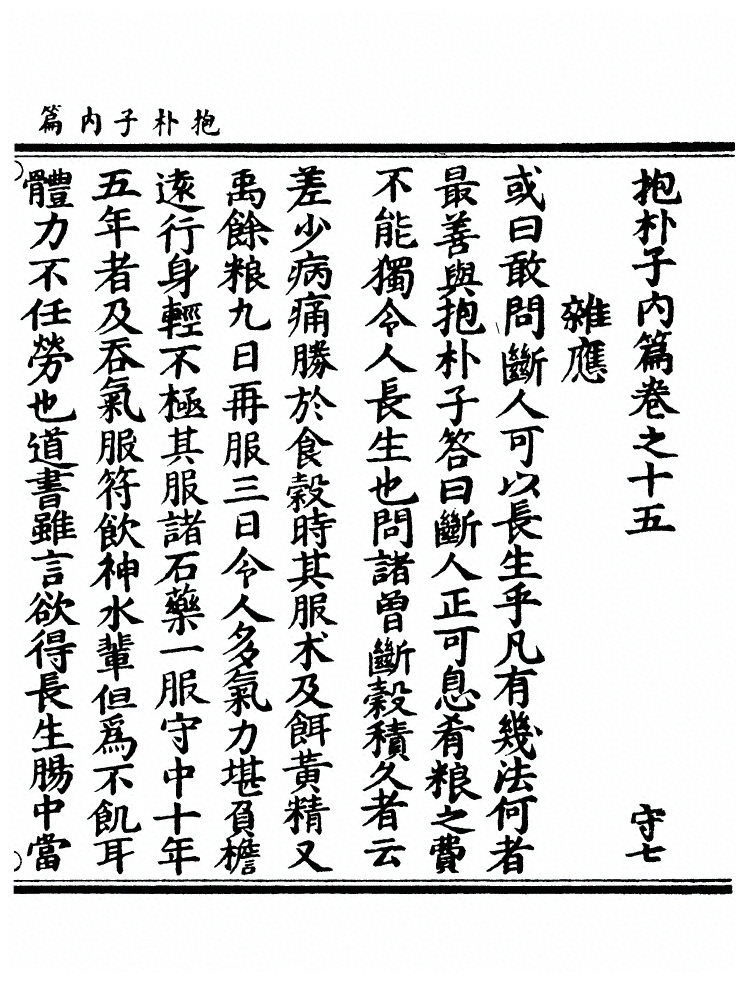 抱朴子內篇
抱朴子內篇卷之十五　守七
雜應
或曰敢問斷人可以長生乎凡有幾法何者
最善與抱朴子答曰斷人正可息肴粮之費
不能獨令人長生也問諸曾斷穀積久者云
差少病痛勝於食穀時其服朮及餌黃精又
禹餘粮九日再服三日令人多氣力堪負檐
遠行身輕不極其服諸石藥一服守中十年
五年者及吞氣服符飲神水輩但為不飢耳
體力不任勞也道書雖言欲得長生腸中當